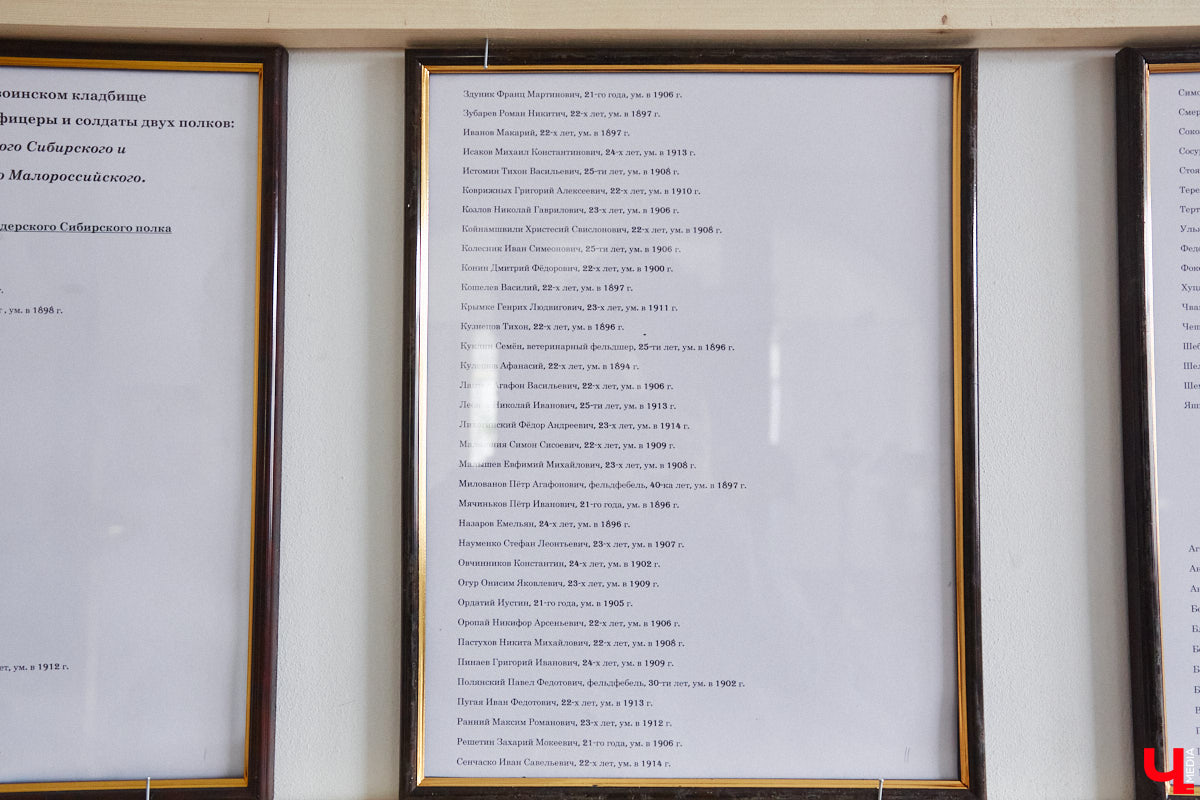 воинском кладбище
фицеры и солдаты двух полков:
ого Сибирского и
о Малороссийского.
дерского Сибирского полка
г.
г , ум. в 1898 г.
ет, ум. в 1912 г.
Здуник Франц Мартинович, 21-го года, ум. в 1906 г.
Зубарев Роман Никитич, 22-х лет, ум. в 1897 г.
Иванов Макарий, 22-х лет, ум. в 1897 г.
Исаков Михаил Константинович, 24-х лет, ум. в 1913 г.
Истомин Тихон Васильевич, 25-ти лет, ум. в 1908 г.
Коврижных Григорий Алексеевич, 22-х лет, ум. в 1910 г.
Козлов Николай Гаврилович, 23-х лет, ум. в 1906 г.
Койнамшвили Христесий Свислонович, 22-х лет, ум. в 1908 г.
Колесник Иван Симеонович, 25-ти лет, ум. в 1906 г.
Конин Дмитрий Фёдорович, 22-х лет, ум. в 1900 г.
Кошелев Василий, 22-х лет, ум. в 1897 г.
Крымке Генрих Людвигович, 23-х лет, ум. в 1911 г.
Кузнецов Тихон, 22-х лет, ум. в 1896 г.
Куклин Семён, ветеринарный фельдшер, 25-ти лет, ум. в 1896 г.
Кулешов Афанасий, 22-х лет, ум. в 1894 г.
Агафон Васильевич, 22-х лет, ум. в 1906 г.
Николай Иванович, 25-ти лет, ум. в 1913 г.
Фёдор Андреевич, 23-х лет, ум. в 1914 г.
Симон Сисоевич, 22-х лет, ум. в 1909 г.
Малышев Евфимий Михайлович, 23-х лет, ум. в 1908 г.
Милованов Пётр Агафонович, фельдфебель, 40-ка лет, ум. в 1897 г.
Мячиньков Пётр Иванович, 21-го года, ум. в 1896 г.
Назаров Емельян, 24-х лет, ум. в 1896 г.
Науменко Стефан Леонтьевич, 23-х лет, ум. в 1907 г.
Овчинников Константин, 24-х лет, ум. в 1902 г.
Огур Онисим Яковлевич, 23-х лет, ум. в 1909 г.
Ордатий Иустин, 21-го года, ум. в 1905 г.
Оропай Никифор Арсеньевич, 22-х лет, ум. в 1906 г.
Пастухов Никита Михайлович, 22-х лет, ум. в 1908 г.
Пинаев Григорий Иванович, 24-х лет, ум. в 1909 г.
Полянский Павел Федотович, фельдфебель, 30-ти лет, ум. в 1902 г.
Пугая Иван Федотович, 22-х лет, ум. в 1913 г.
Ранний Максим Романович, 23-х лет, ум. в 1912 г.
Решетин Захарий Мокеевич, 21-го года, ум. в 1906 г.
Сенчаско Иван Савельевич, 22-х лет, ум. в 1914 г.
Симо
Смер
Соко
Сосу
Стоя
Тере
Терт
Ульк
Федо
Фоко
Хуца
Чва
Чеп
Шеб
Шел
Шем
Яш
Аг
Ан
Ан
Бе
Бл
Бо
Бо
Б
В
Ч MEDIA